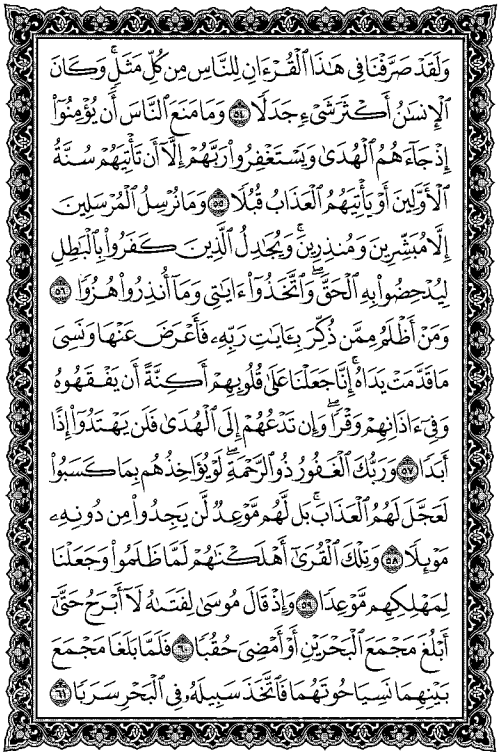 وَلَقَدْ صَرَّفْنَا فِى هَـٰذَا ٱلْقُرْءَانِ لِلنَّاسِ مِن كُلِّ مَثَلٍۢ ۚ وَكَانَ
ٱلْإِنسَـٰنُ أَكْثَرَ شَىْءٍۢ جَدَلًۭا ٥٤ وَمَا مَنَعَ ٱلنَّاسَ أَن يُؤْمِنُوٓا۟
إِذْ جَآءَهُمُ ٱلْهُدَىٰ وَيَسْتَغْفِرُوا۟ رَبَّهُمْ إِلَّآ أَن تَأْتِيَهُمْ سُنَّةُ
ٱلْأَوَّلِينَ أَوْ يَأْتِيَهُمُ ٱلْعَذَابُ قُبُلًۭا ٥٥ وَمَا نُرْسِلُ ٱلْمُرْسَلِينَ
إِلَّا مُبَشِّرِينَ وَمُنذِرِينَ ۚ وَيُجَـٰدِلُ ٱلَّذِينَ كَفَرُوا۟ بِٱلْبَـٰطِلِ
لِيُدْحِضُوا۟ بِهِ ٱلْحَقَّ ۖ وَٱتَّخَذُوٓا۟ ءَايَـٰتِى وَمَآ أُنذِرُوا۟ هُزُوًۭا ٥٦
وَمَنْ أَظْلَمُ مِمَّن ذُكِّرَ بِـَٔايَـٰتِ رَبِّهِۦ فَأَعْرَضَ عَنْهَا وَنَسِىَ
مَا قَدَّمَتْ يَدَاهُ ۚ إِنَّا جَعَلْنَا عَلَىٰ قُلُوبِهِمْ أَكِنَّةً أَن يَفْقَهُوهُ
وَفِىٓ ءَاذَانِهِمْ وَقْرًۭا ۖ وَإِن تَدْعُهُمْ إِلَى ٱلْهُدَىٰ فَلَن يَهْتَدُوٓا۟ إِذًا
أَبَدًۭا ٥٧ وَرَبُّكَ ٱلْغَفُورُ ذُو ٱلرَّحْمَةِ ۖ لَوْ يُؤَاخِذُهُم بِمَا كَسَبُوا۟
لَعَجَّلَ لَهُمُ ٱلْعَذَابَ ۚ بَل لَّهُم مَّوْعِدٌۭ لَّن يَجِدُوا۟ مِن دُونِهِۦ
مَوْئِلًۭا ٥٨ وَتِلْكَ ٱلْقُرَىٰٓ أَهْلَكْنَـٰهُمْ لَمَّا ظَلَمُوا۟ وَجَعَلْنَا
لِمَهْلِكِهِم مَّوْعِدًۭا ٥٩ وَإِذْ قَالَ مُوسَىٰ لِفَتَىٰهُ لَآ أَبْرَحُ حَتَّىٰٓ
أَبْلُغَ مَجْمَعَ ٱلْبَحْرَيْنِ أَوْ أَمْضِىَ حُقُبًۭا ٦٠ فَلَمَّا بَلَغَا مَجْمَعَ
بَيْنِهِمَا نَسِيَا حُوتَهُمَا فَٱتَّخَذَ سَبِيلَهُۥ فِى ٱلْبَحْرِ سَرَبًۭا ٦١